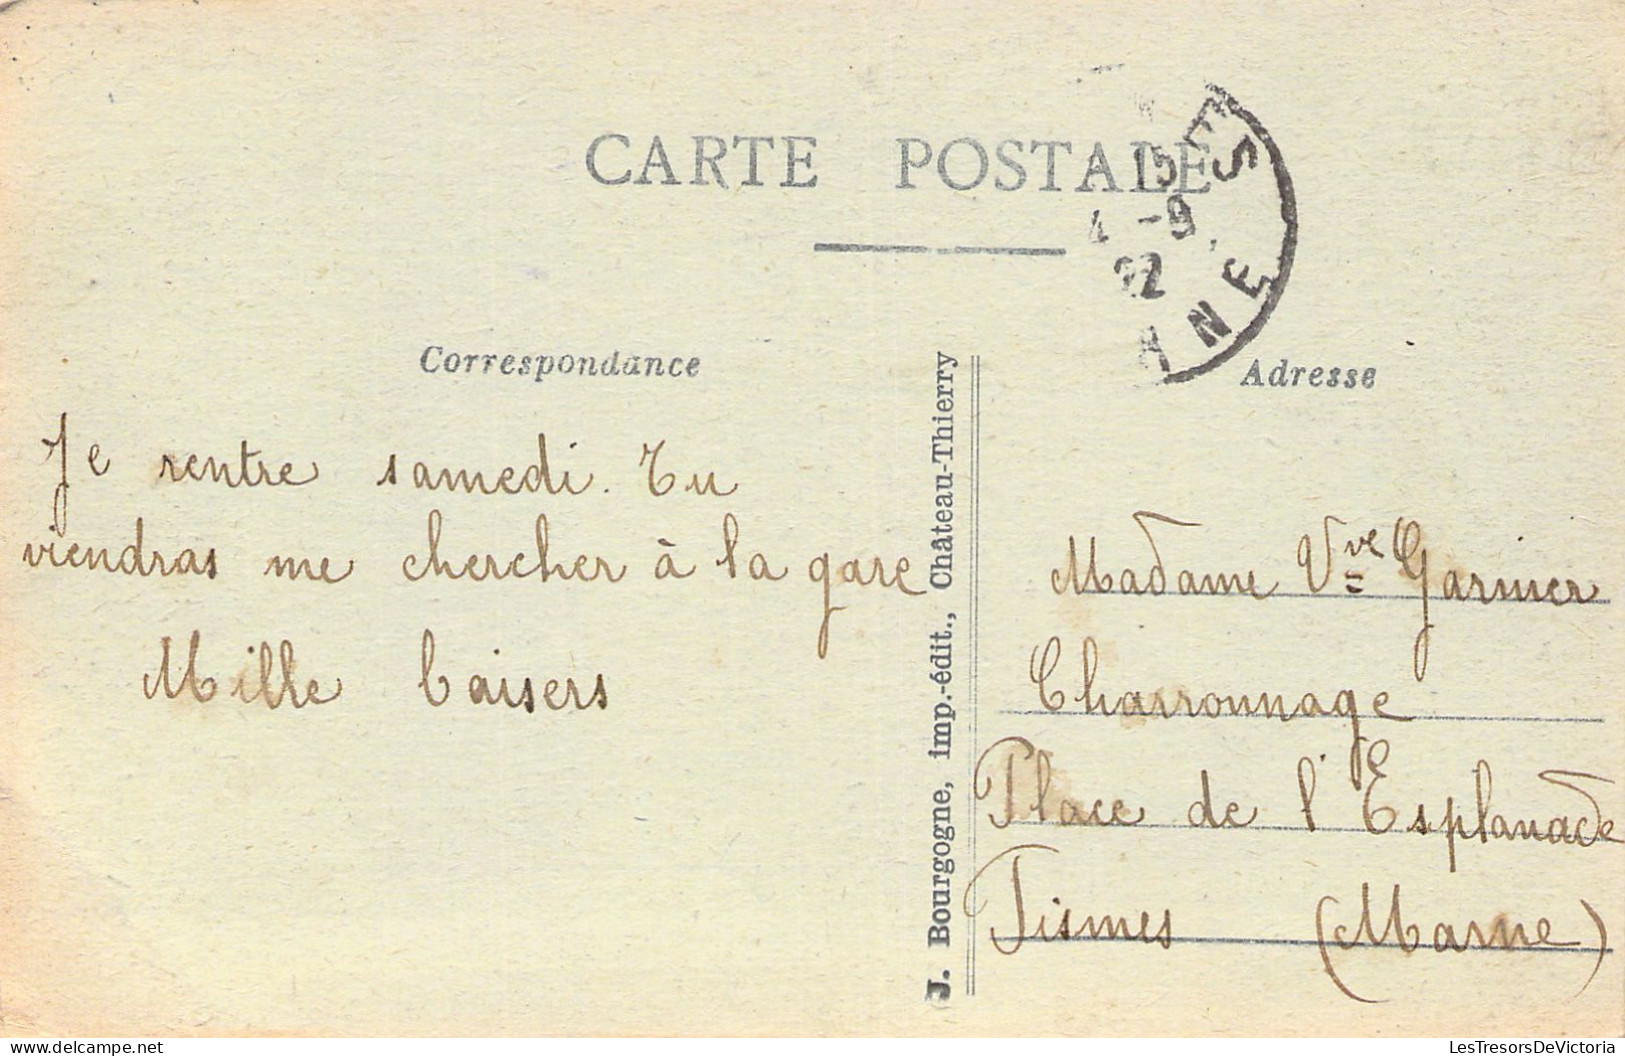 CARTE POSTALE
15
4 -9
22
ANE
Correspondance
Adresse
Je rentre samedi. Tu
viendras me chercher à la gare
Mille baisers
J. Bourgogne, imp.-édit., Château-Thierry
Madame Vve Garnier
Charronnage
Place de l'Esplanade
Fismes (Marne)
LesTresorsDeVictoria